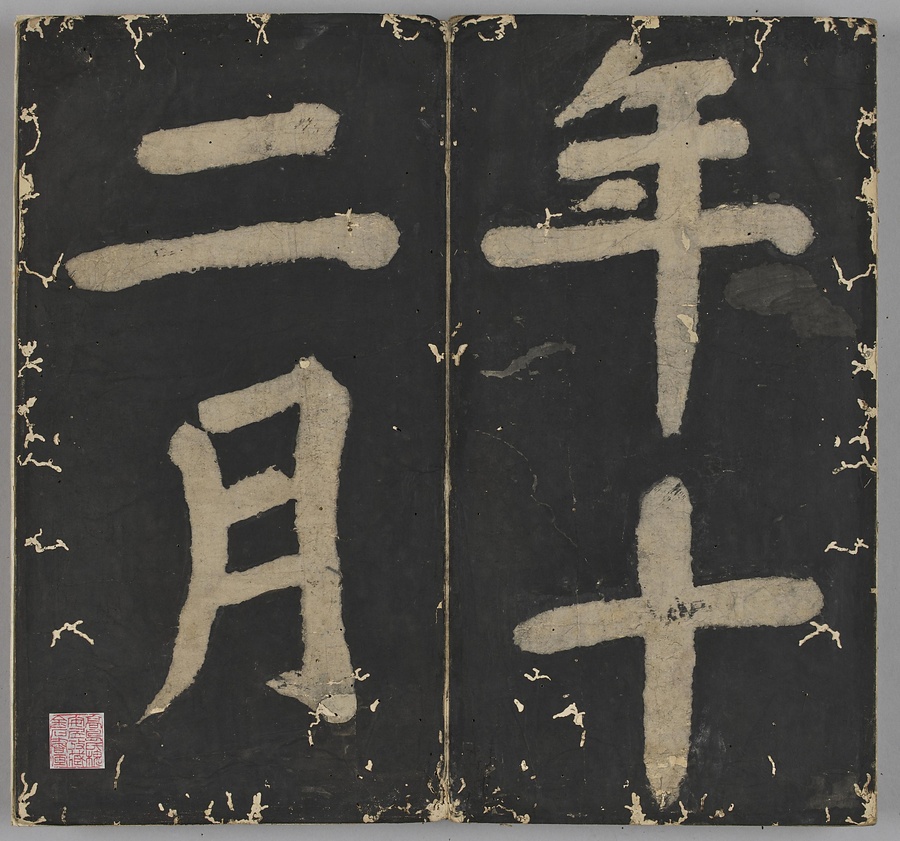 年十
二月